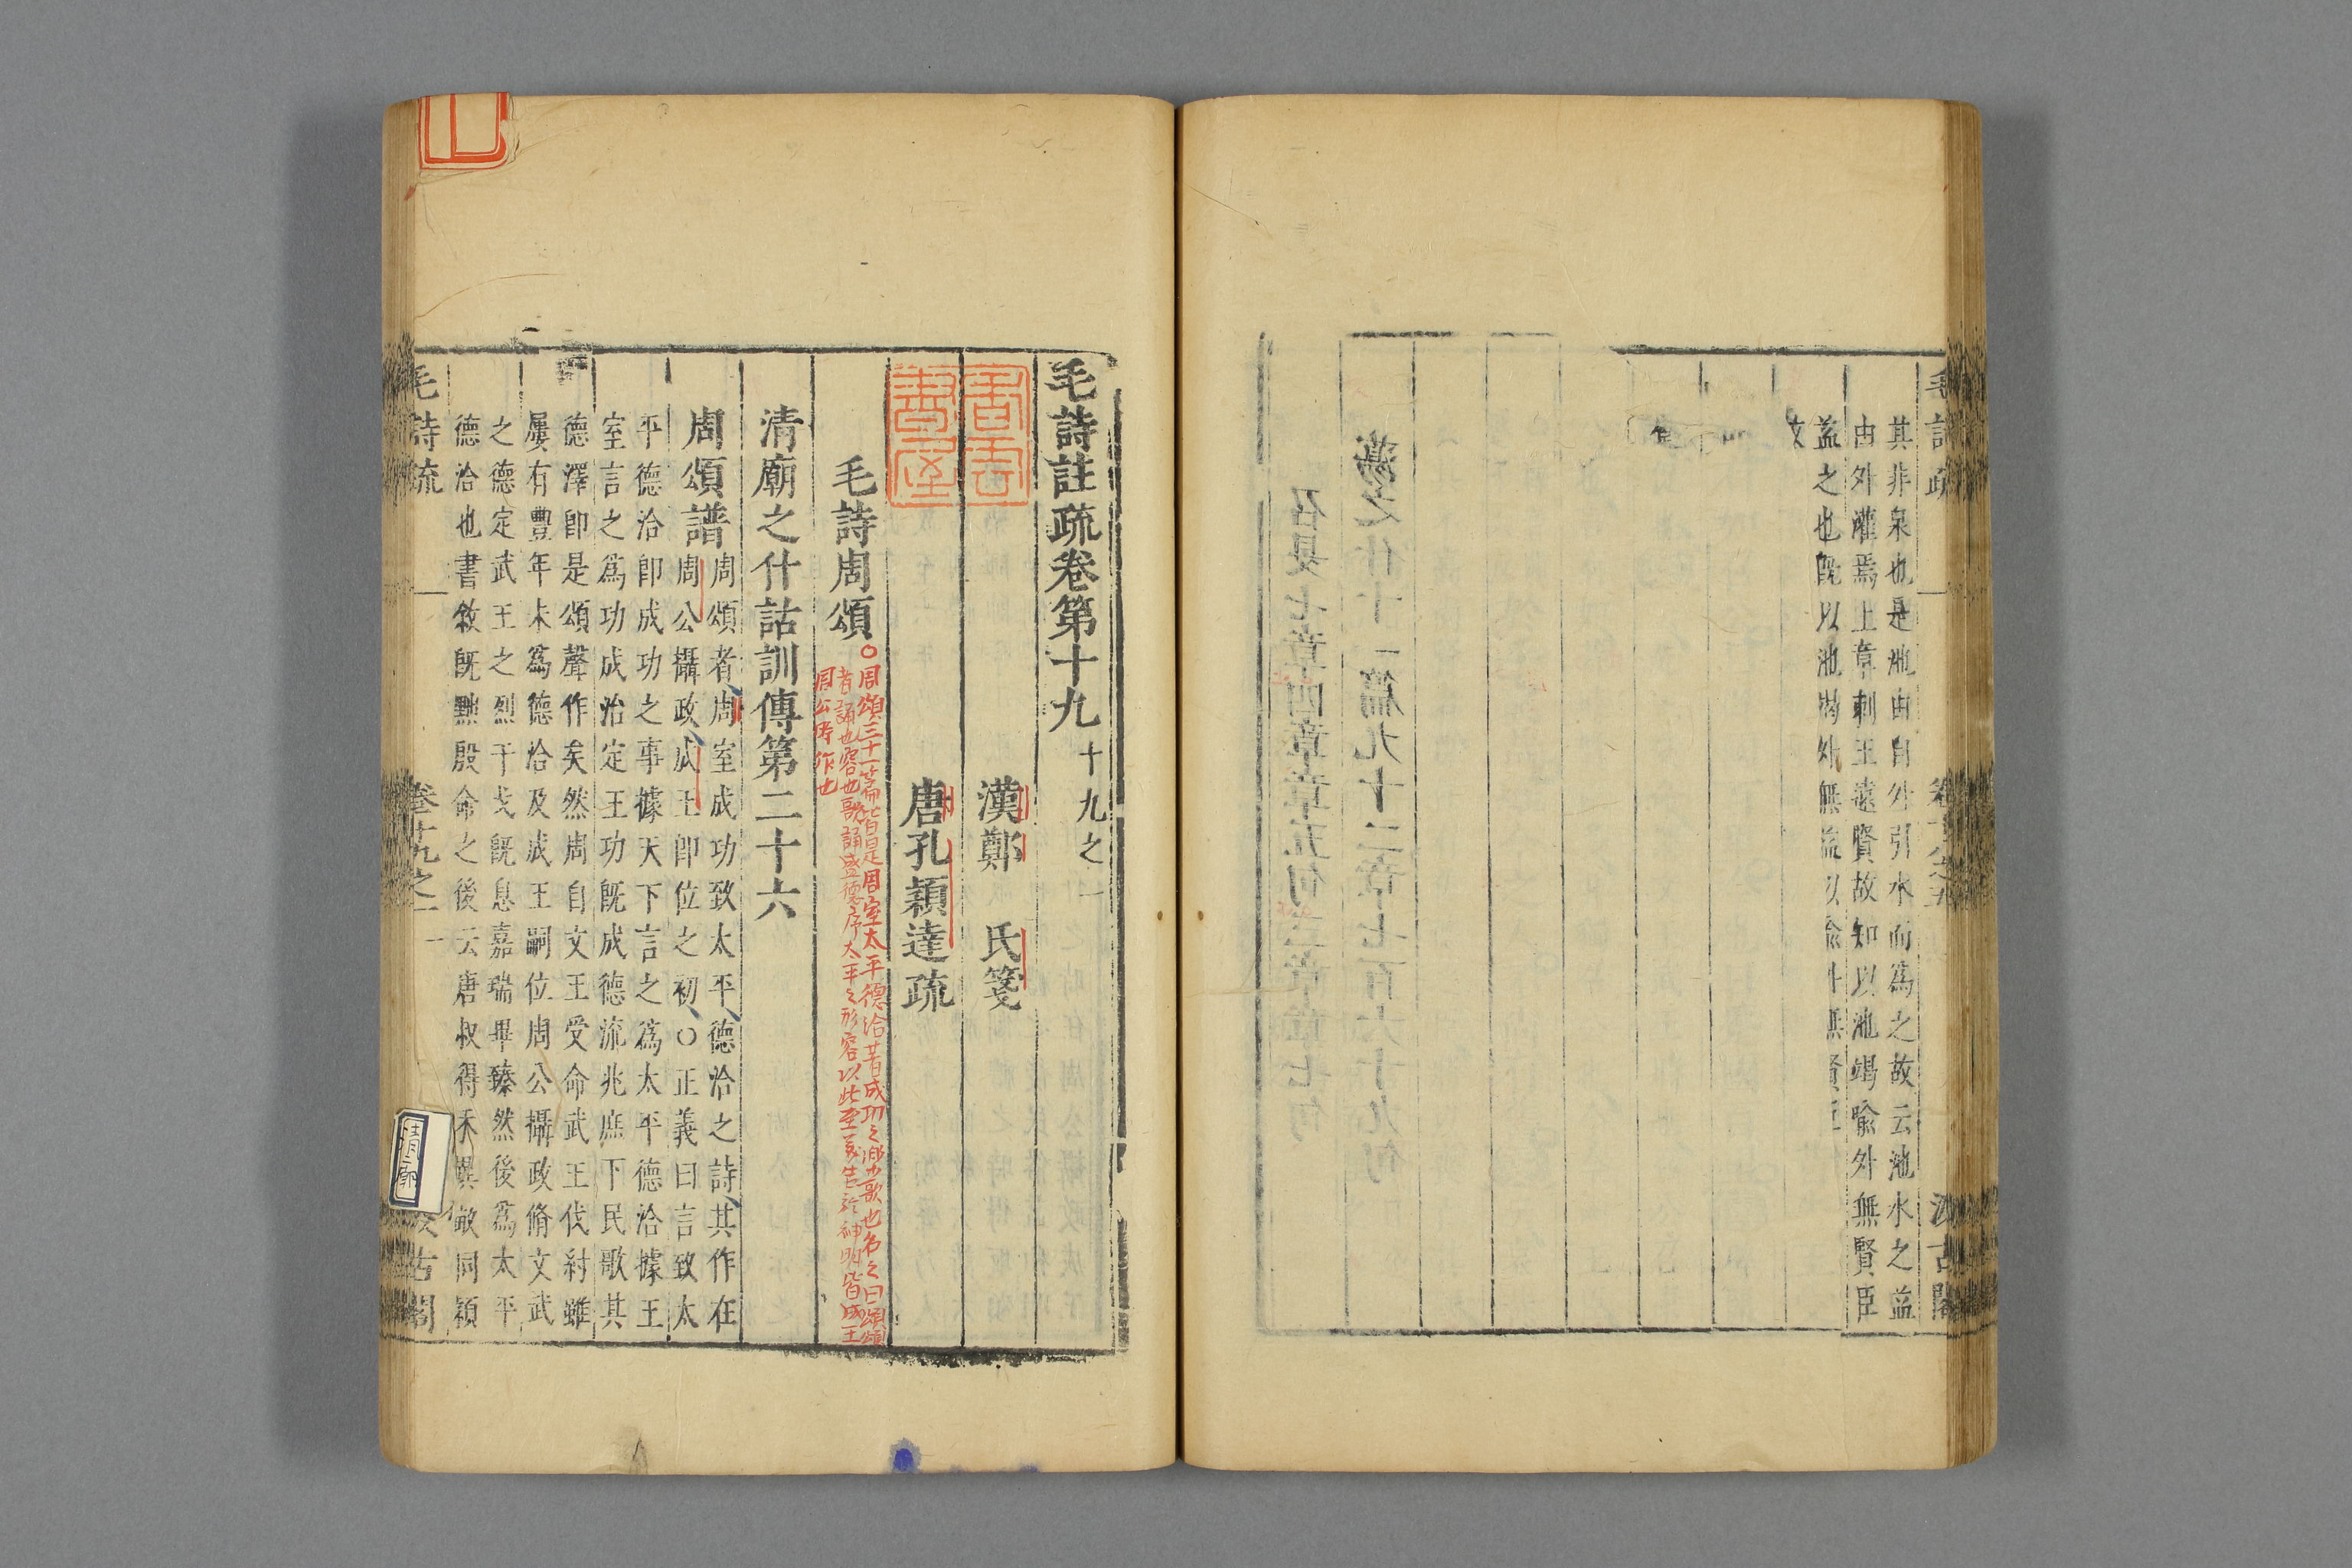 其非泉也是池由自外引水而爲之故云池水之益
由外灌焉上章刺王遠賢故知以池竭喻外無賢臣
益之也旣以池竭外無益以喻外無賢臣
故
毛詩註疏卷第十九 十九之一
漢鄭 氏箋
唐孔穎達疏
毛詩周頌
○周頌三十一篇皆是周室太平德洽著成功之樂歌也名之曰頌頌
者誦也容也歌誦盛德序太平之形容以此至美告於神明皆成王
周公時作也
清廟之什詁訓傳第二十六
周頌譜
周頌者周室成功致太平德洽之詩其作在
周公攝政成王卽位之初○正義曰言致太
平德洽卽成功之事據天下言之爲太平德洽據王
室言之爲功成治定王功旣成德流兆庶下民歌其
德澤卽是頌聲作矣然周自文王受命武王伐紂雖
屢有豐年未爲德洽及成王嗣位周公攝政脩文武
之德定武王之烈干戈旣息嘉瑞畢臻然後爲太平
德洽也書敘旣黜殷命之後云唐叔得禾異畝同穎
毛詩疏 卷十九之一 一 汲古閣
清廟